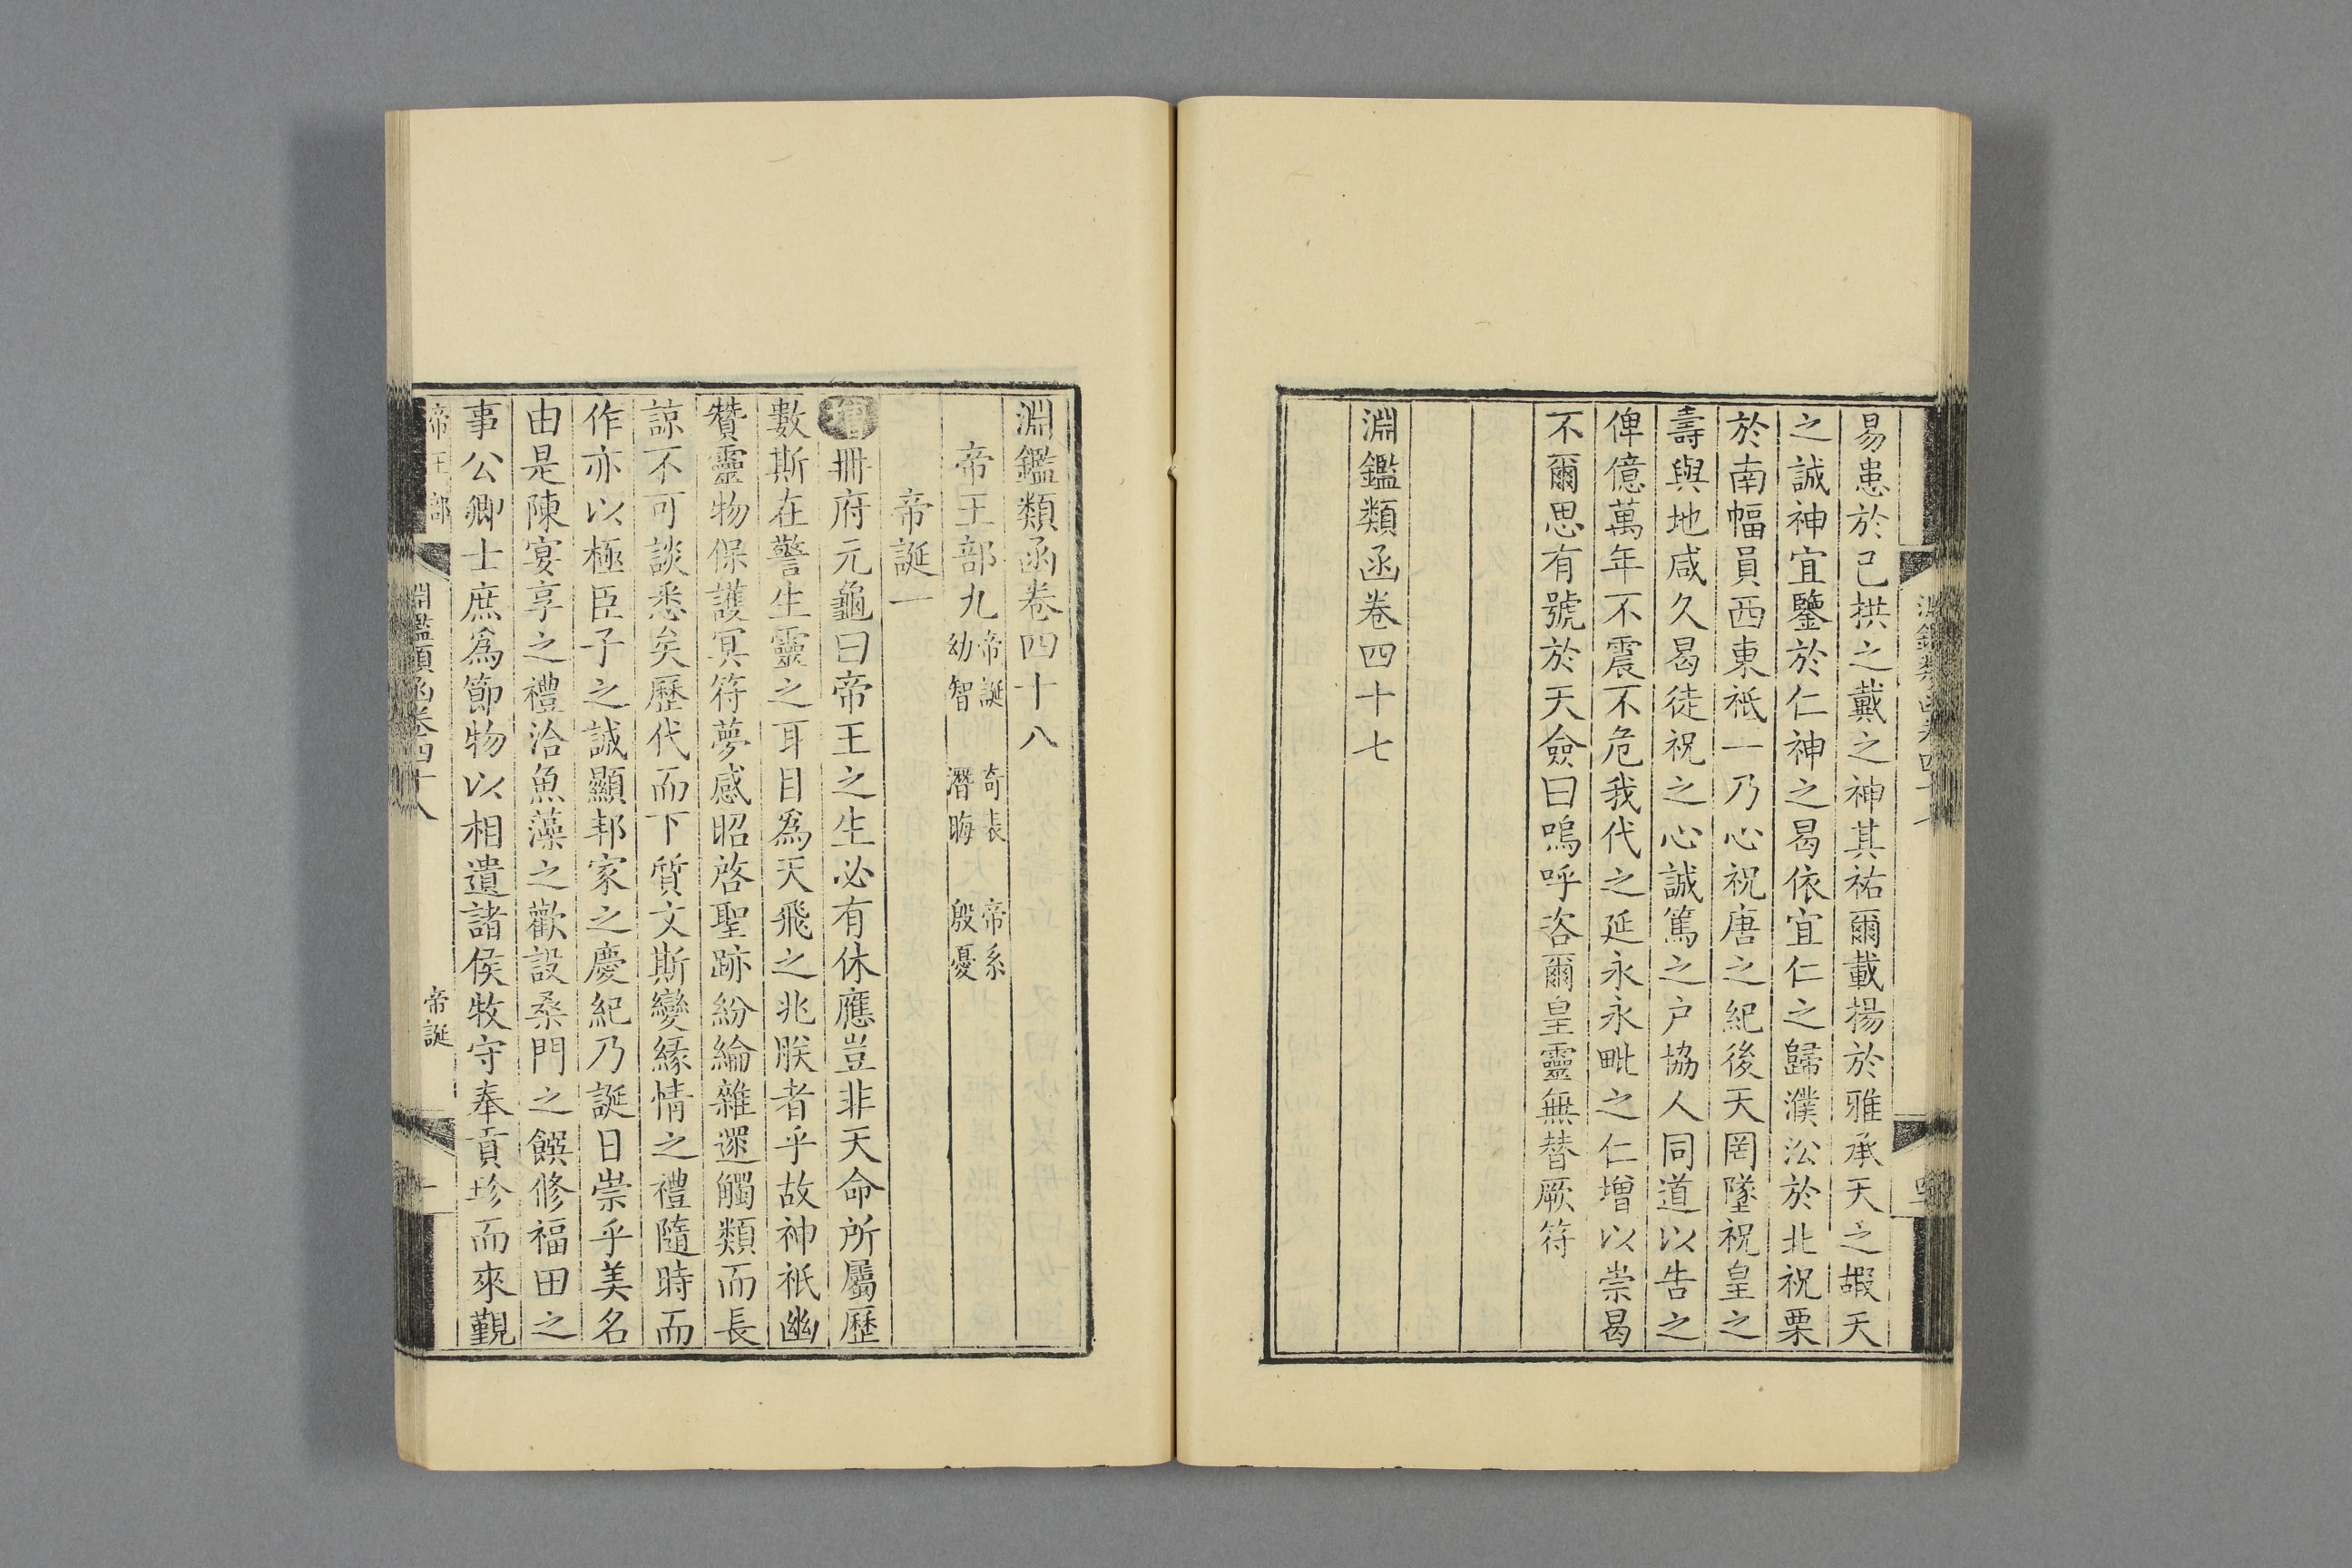 易患於已拱之戴之神其祐爾載揚於雅承天之嘏天
之誠神宜鑒於仁神之曷依宜仁之歸濮㳂於北祝栗
於南幅員西東祗一乃心祝唐之紀後天罔墜祝皇之
壽與地咸久曷徒祝之心誠篤之户協人同道以告之
俾億萬年不震不危我代之延永永毗之仁增以崇曷
不爾思有號於天僉曰嗚呼咨爾皇靈無替厥符
淵鑑類函卷四十七
淵鑑類函卷四十八
帝王部九 帝誕 奇表 帝系
幼智 潛晦 殷憂
帝誕一
增冊府元龜曰帝王之生必有休應豈非天命所屬歷
數斯在警生靈之耳目爲天飛之兆朕者乎故神祇幽
贊靈物保護冥符夢感昭啓聖跡紛綸雜遝觸類而長
諒不可談悉矣歷代而下質文斯變緣情之禮隨時而
作亦以極臣子之誠顯邦家之慶紀乃誕日崇乎美名
由是陳宴享之禮洽魚藻之歡設桑門之饌修福田之
事公卿士庶爲節物以相遺諸侯牧守奉貢珍而來覲
帝王部
淵鑑類函卷四十八
帝誕
一